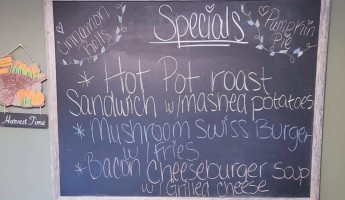 Specials
Cinnamon
Rolls
Pumpkin
Pie
* Hot Pot roast
Sandwich w/mashed potatoes
* Mushroom Swiss Burger
w/ Fries
* Bacon Cheeseburger Soup
w/ Grilled cheese
Harvest Time